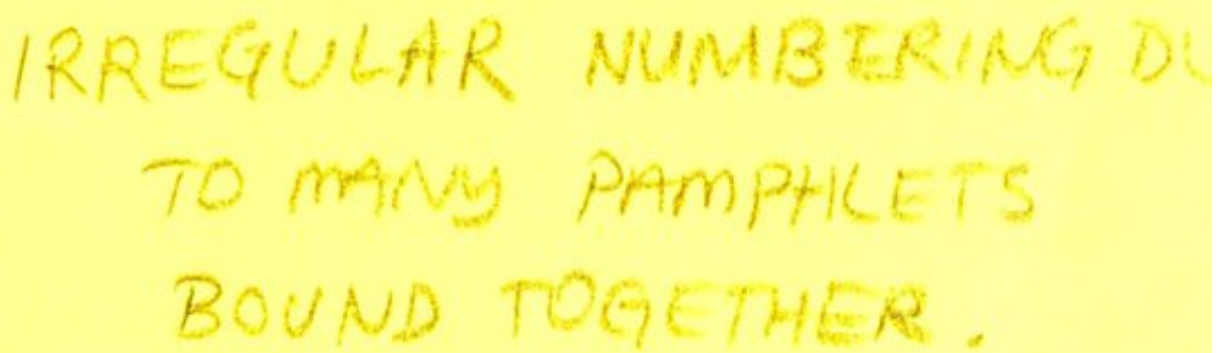 IRREGULAR NUMBERING DU
TO MANY PAMPHLETS
BOUND TOGETHER.